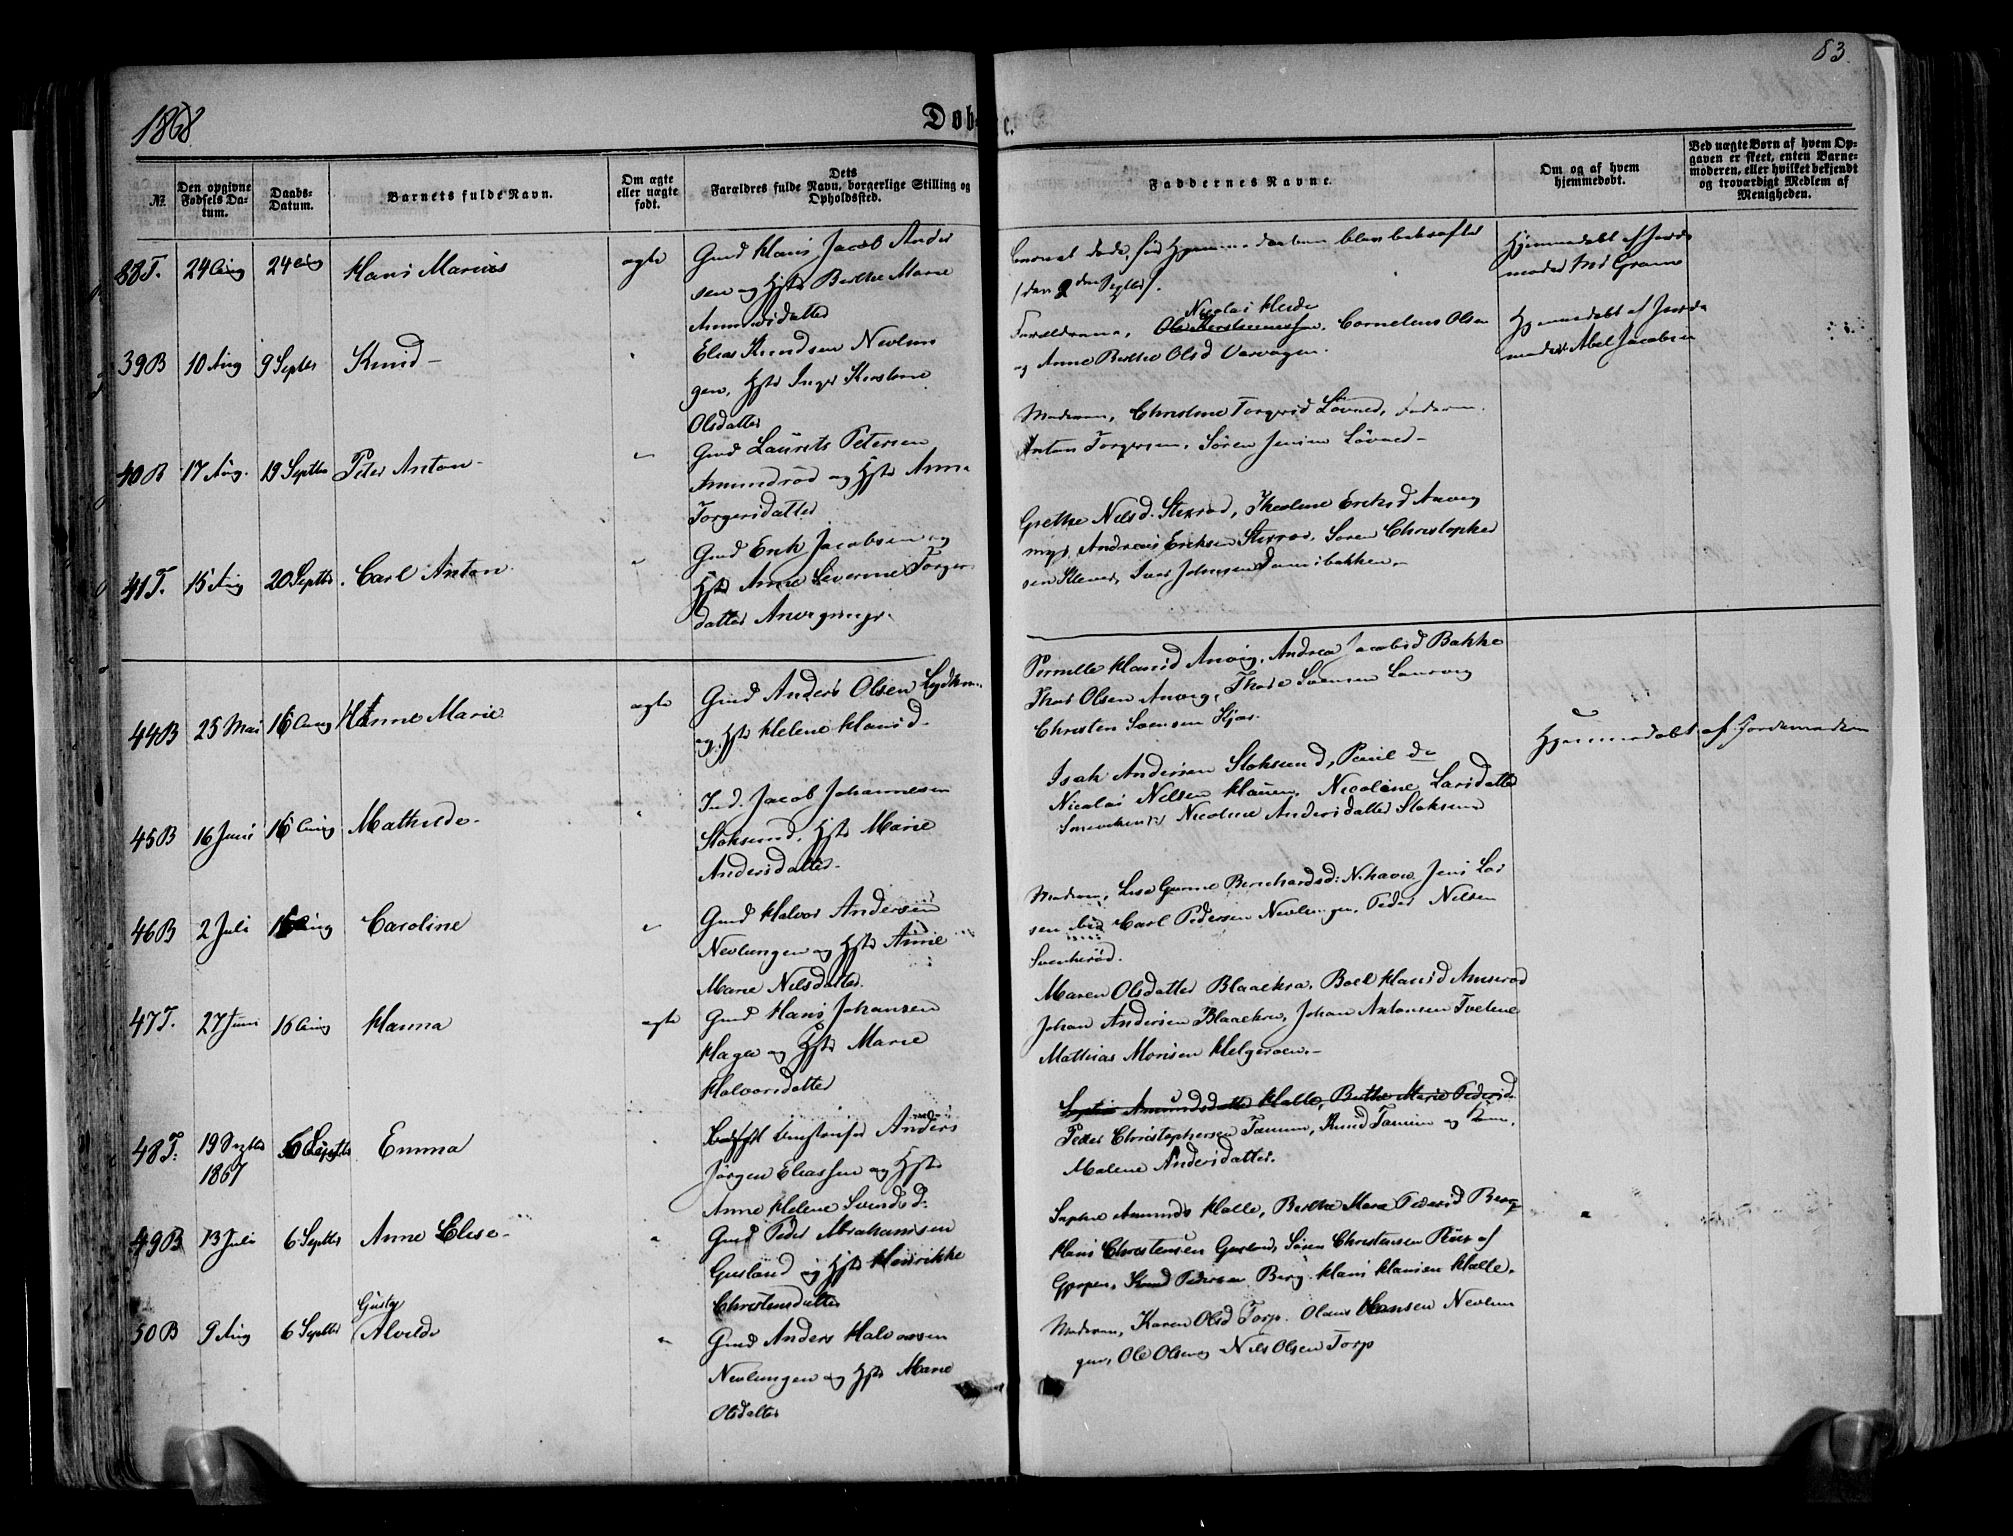 83.
1868
Døbte.
№
Den opgivne Fødsels Datum.
Daabs-Datum.
Barnets fulde Navn.
Om ægte eller uægte født.
Dets Forældres fulde Navn, borgerlige Stilling og Opholdssted.
Faddernes Navne.
Om og af hvem hjemmedøbt.
Ved uægte Børn af hvem Opgaven er skeet, enten Barnemoderen, eller hvilket bekjendt og troværdigt Medlem af Menigheden.
38T. 24 Aug 24 Aug Hans Marius ægte Gmd Hans Jacob Ander
sen og Hstr Berthe Marie
Amundsdatter
Barnet døde, før Hjemmedaaben blev bekræftet
(den 2den Septbr).
Hjemmedøbt af Jorde
moder
39B 10 Aug 9 Septbr Knud - " Elias Knudsen Nevlun
gen, Hstr Inger Kirstine
Olsdatter
Forældrene, Nicolai Heide Cornelius Olsen
og Anne Berthe Olsd Varvogen.
Hjemmedøbt af Jorde
moder Abel Jacobsen
40B 17 Aug. 19 Septbr Peter Anton - " Gmd Laurits Petersen
Amundrød og Hstr Anne
Torgersdatter
Moderen, Christine Torgersd Løvned, Faderen.
Anton Torgersen, Søren Jensen Løvned -
41T. 15 Aug 20 Septbr. Carl Anton. " Gmd Erik Jacobsen og
Hstr Anne Severine Torger
datter Anvegmyr.
Grethe Nilsd. Stixrød, Theoline Eriksd Anveg
myr, Andreas Eriksen Stixrød, Søren Christopher
sen Klever, Iver Johnsen Damsbakken. -
44B 25 Mai 16 Aug Hanne Marie ægte Gmd Anders Olsen
og Hstr Helene Hansd -
Pernelle Hansd Anvig, Andrea Jacobsd Bakke
Thor Olsen Anveg, Thore Svensen Laurvig
Christen Svensen Kjær.
45B 16 Juni 16 Aug Mathilde - " Ind. Jacob Johannesen
Stoksund, Hstr Marie
Andersdatter -
Isak Andersen Stoksund, Paul do
Nicolai Nilsen Hauen, Nicoline Larsdatter
Nicoline Andersdatter Stoksund
Hjemmedøbt af Jordemoderen
46B 2 Juli 16 Aug Caroline " Gmd Halvor Andersen
Nevlungen og Hstr Anne
Marie Nilsdatter.
Moderen, Lise Gunne Bernhardsd: N.havn Jens Lar
sen ibid Carl Pedersen Nevlungen, Peder Nilsen
Svenkerød.
47T. 27 Juni 16 Aug Hanna ægte Gmd Hans Johansen
Haga og Hstr Marie
Halvorsdatter
Maren Olsdatter Blaaekra, Boel Hansd Amserød
Johan Andersen Blaaekra, Johan Antonsen Tvetene
Mathias Monsen Helgeroen. -
48T. 19 Septbr 1867 6 Septbr Emma " Anders
Jørgen Eliassen og Hstr
Anne Helene Svendsd:
Sophie Amundsdatter Halle, Berthe Marie Pedersd.
Peder Christophersen Tanum, Knud Tanum og Kone,
Malene Andersdatter.
49B 13 Juli 6 Septbr Anne Elise - " Gmd Peder Abrahamsen
Gusland og Hstr Henrikke
Christensdatter
Sophie Amunds Halle, Berthe Marie Pedersd Berg
Hans Christensen Gusland, Søren Christensen
Gjerpen, Knud Pedersen Berg. Hans Hansen Halle.
50B 9 Aug 6 Septbr Gustav
Alvilde " Gmd Anders Halvorsen
Nevlungen og Hstr Marie
Olsdatter
Moderen, Karen Olsd Torp. Olaus Hansen Nevlun
gen, Ole Olsen og Nils Olsen Torp